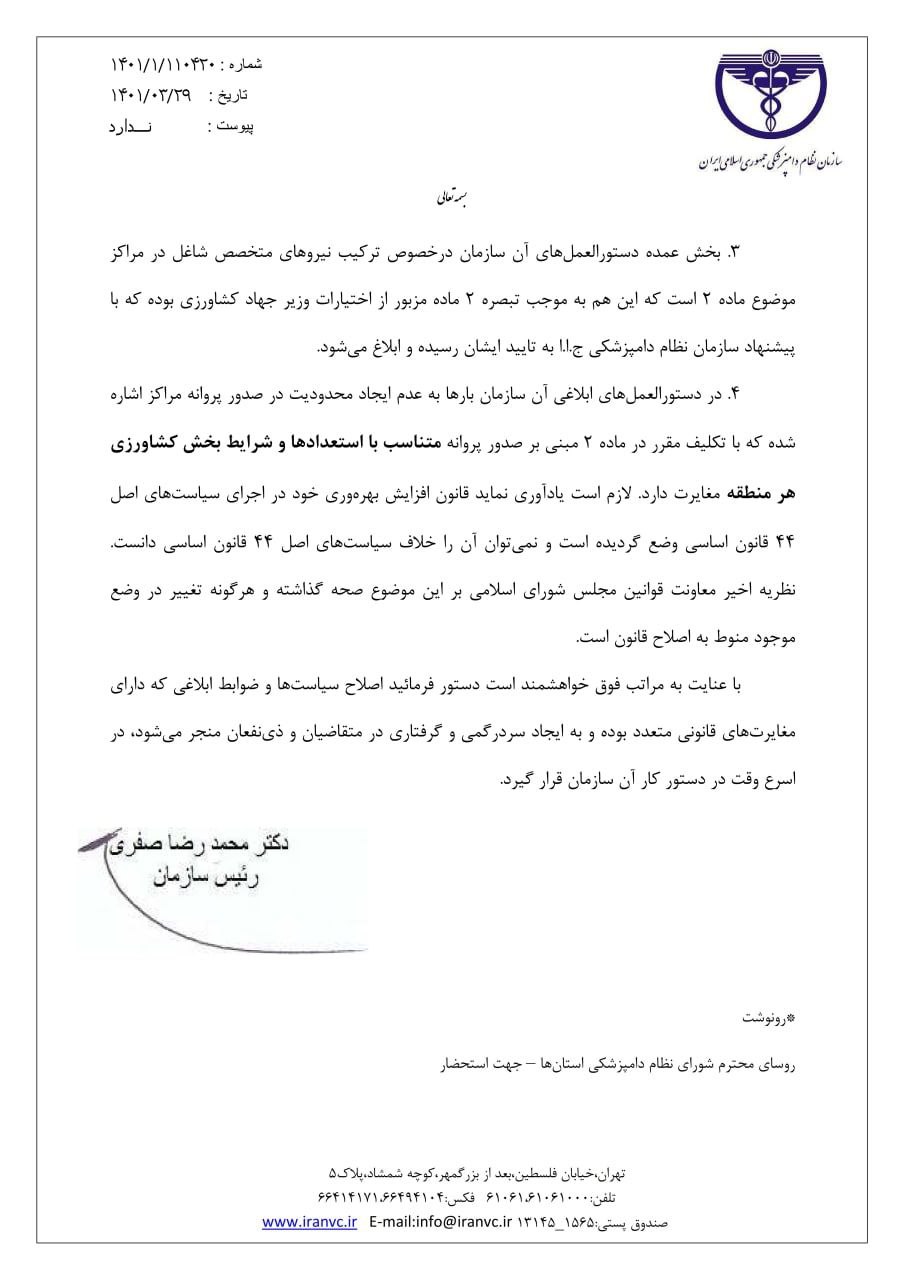 شماره : ۱۴۰۱/۱/۱۱۰۴۳۰
تاریخ : ۱۴۰۱/۰۳/۲۹
پیوست : نـــدارد
سازمان نظام دامپزشکی جمهوری اسلامی ایران
بسمه تعالی
۳. بخش عمده دستورالعمل‌های آن سازمان درخصوص ترکیب نیروهای متخصص شاغل در مراکز
موضوع ماده ۲ است که این هم به موجب تبصره ۲ ماده مزبور از اختیارات وزیر جهاد کشاورزی بوده که با
پیشنهاد سازمان نظام دامپزشکی ج.ا.ا به تایید ایشان رسیده و ابلاغ می‌شود.
۴. در دستورالعمل‌های ابلاغی آن سازمان بارها به عدم ایجاد محدودیت در صدور پروانه مراکز اشاره
شده که با تکلیف مقرر در ماده ۲ مبنی بر صدور پروانه متناسب با استعدادها و شرایط بخش کشاورزی
هر منطقه مغایرت دارد. لازم است یادآوری نماید قانون افزایش بهره‌وری خود در اجرای سیاست‌های اصل
۴۴ قانون اساسی وضع گردیده است و نمی‌توان آن را خلاف سیاست‌های اصل ۴۴ قانون اساسی دانست.
نظریه اخیر معاونت قوانین مجلس شورای اسلامی بر این موضوع صحه گذاشته و هرگونه تغییر در وضع
موجود منوط به اصلاح قانون است.
با عنایت به مراتب فوق خواهشمند است دستور فرمائید اصلاح سیاست‌ها و ضوابط ابلاغی که دارای
مغایرت‌های قانونی متعدد بوده و به ایجاد سردرگمی و گرفتاری در متقاضیان و ذی‌نفعان منجر می‌شود، در
اسرع وقت در دستور کار آن سازمان قرار گیرد.
دکتر محمد رضا صفری
رئیس سازمان
*رونوشت
روسای محترم شورای نظام دامپزشکی استان‌ها – جهت استحضار
تهران،خیابان فلسطین،بعد از بزرگمهر،کوچه شمشاد،پلاک۵
تلفن:۶۱۰۶۱،۶۱۰۶۱۰۰۰ فکس:۶۶۴۱۴۱۷۱،۶۶۴۹۴۱۰۴
صندوق پستی:۱۵۶۵_۱۳۱۴۵ E-mail:info@iranvc.ir www.iranvc.ir